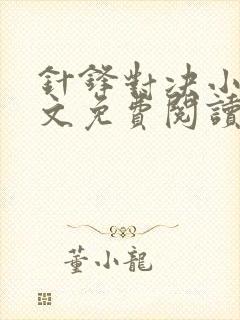 針鋒對决小
文免費閱讀
董小龍